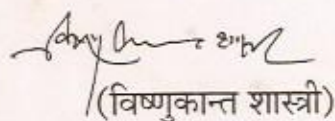 (विष्णुकान्त शास्त्री)